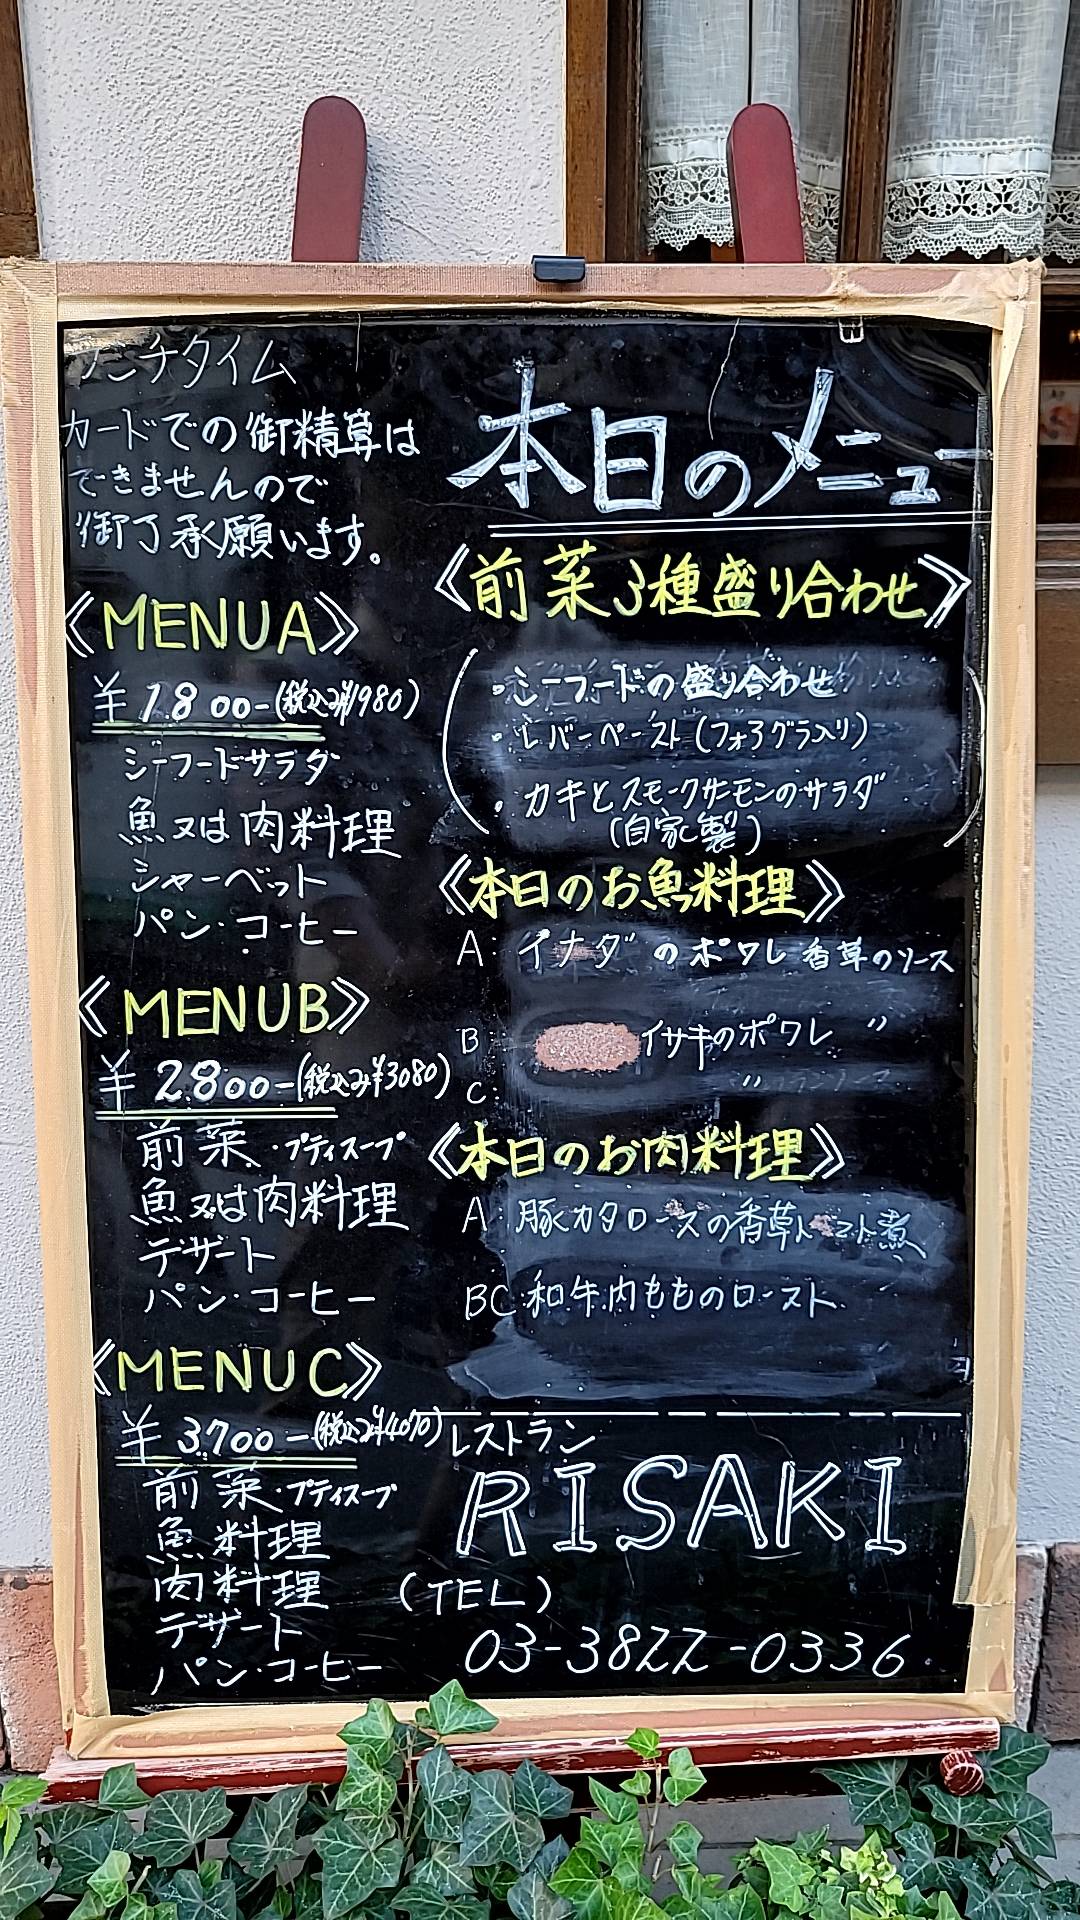 ンチタイム
カードでの御精算は
できませんので
御了承願います。
《MENUA》
¥1.800-(税込み¥1980)
シーフードサラダ
魚又は肉料理
シャーベット
パン・コーヒー
《MENUB》
¥2.800-(税込み¥3080)
前菜・プティスープ
魚又は肉料理
デザート
パン・コーヒー
《MENUC》
¥3.700-(税込み¥4070)
前菜・プティスープ
魚料理
肉料理
デザート
パン・コーヒー
本日のメニュー
《前菜3種盛り合わせ》
・シーフードの盛り合わせ
・レバーペースト(フォアグラ入り)
・カキとスモークサーモンのサラダ
(自家製)
《本日のお魚料理》
A:イナダのポワレ 香草のソース
B: イサキのポワレ 〃
C: 〃
《本日のお肉料理》
A:豚カタロースの香草トマト煮
BC:和牛内もものロースト
レストラン
RISAKI
(TEL)
03-3822-0336